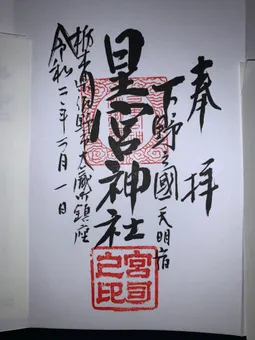 奉拝
下野之國天明宿
星宮神社
栃木県佐野市大蔵町鎮座
令和 年 月一日
宮司之印